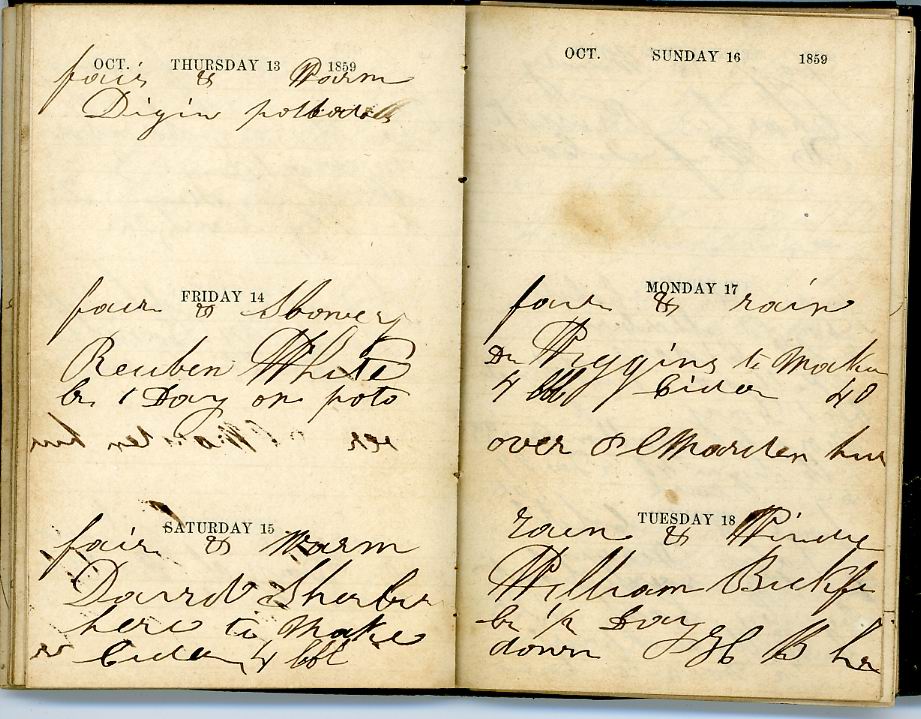 OCT. THURSDAY 13 1859
fair & Warm
Digin pottatoes
FRIDAY 14
fair & Showery
Reuben White
by 1 Day on poto
SATURDAY 15
fair & Warm
David
here to Make
Cider 4 bbl
OCT. SUNDAY 16 1859
MONDAY 17
fair & rain
Dr Wiggins to Make
4 bbl Cider 40
over Marsten
TUESDAY 18
rain & Windy
William
by 1/2 Day
down B